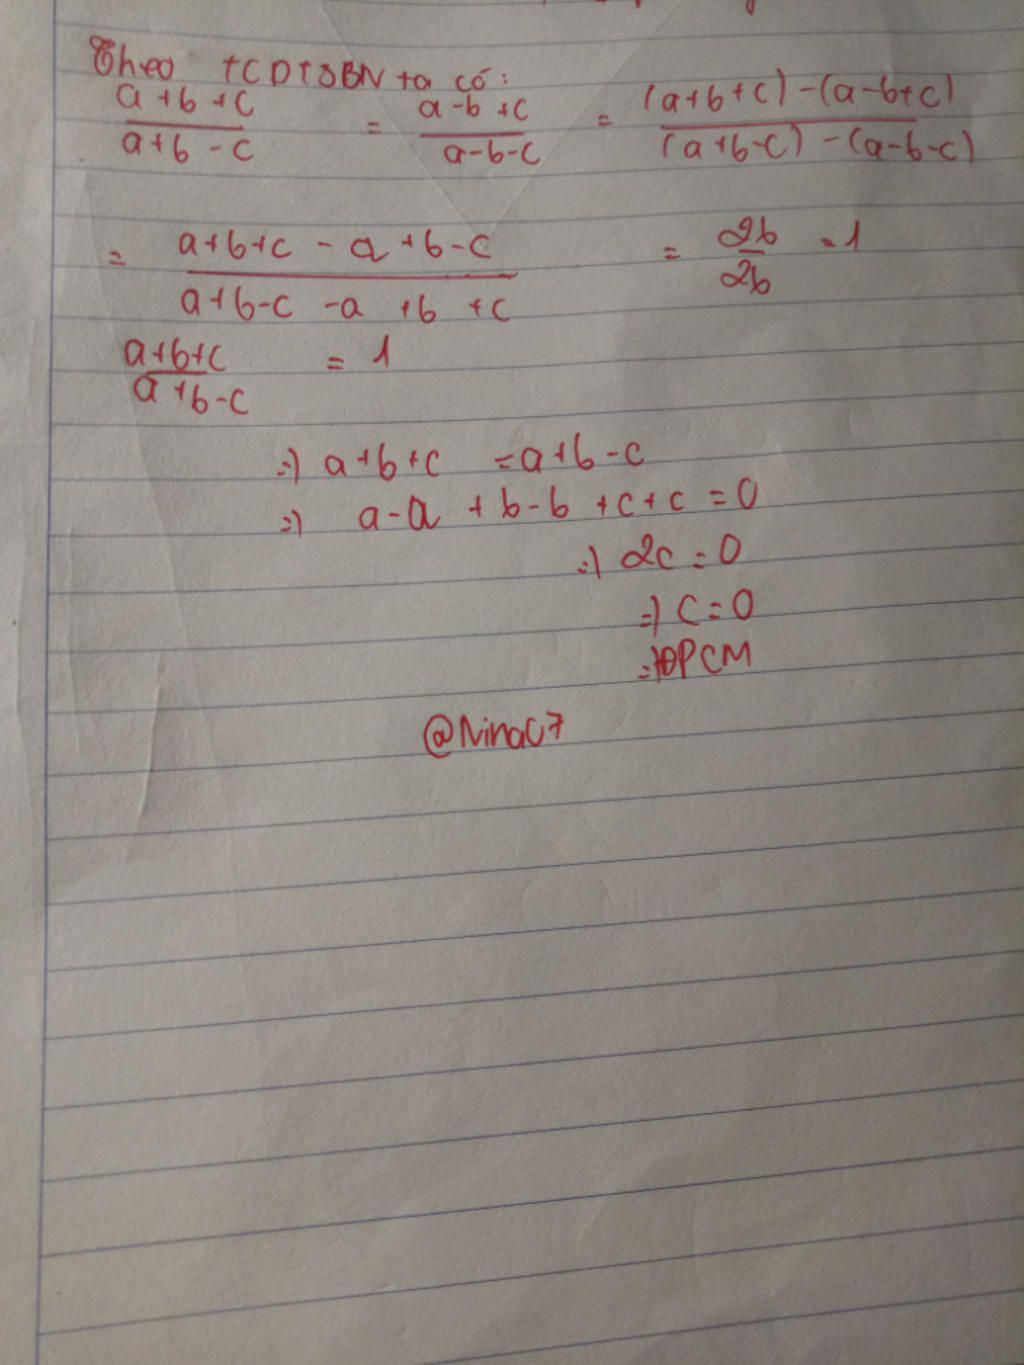 Theo TCDTSBN ta có:
a+b+c / a+b-c = a-b+c / a-b-c = (a+b+c)-(a-b+c) / (a+b-c)-(a-b-c)
= a+b+c-a+b-c / a+b-c-a+b+c = 2b / 2b = 1
a+b+c / a+b-c = 1
=) a+b+c = a+b-c
=) a-a+b-b+c+c=0
=) 2c=0
=) c=0
=) ĐPCM
@NinaC7